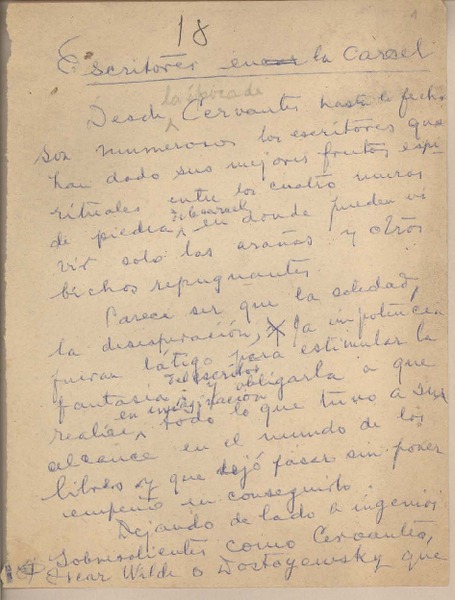 18
1
Escritores en la Carcel
la época de
Desde Cervantes hasta la fecha
son numerosos los escritores que
han dado sus mejores frutos espi
rituales entre los cuatro muros
de piedra, de la carcel en donde pueden vi
vir solo las arañas y otros
bichos repugnantes
Parece ser que la soledad,
la desesperación, la impotencia
fueran látigo para estimular la
fantasía del escritor y obligarla a que
realice, en imaginación todo lo que tuvo a su
alcance en el mundo de los
libres y que dejó pasar sin poner
empeño en conseguirlo.
Dejando de lado a ingenios
sobresalientes como Cervantes,
Oscar Wilde o Dostoyewsky que